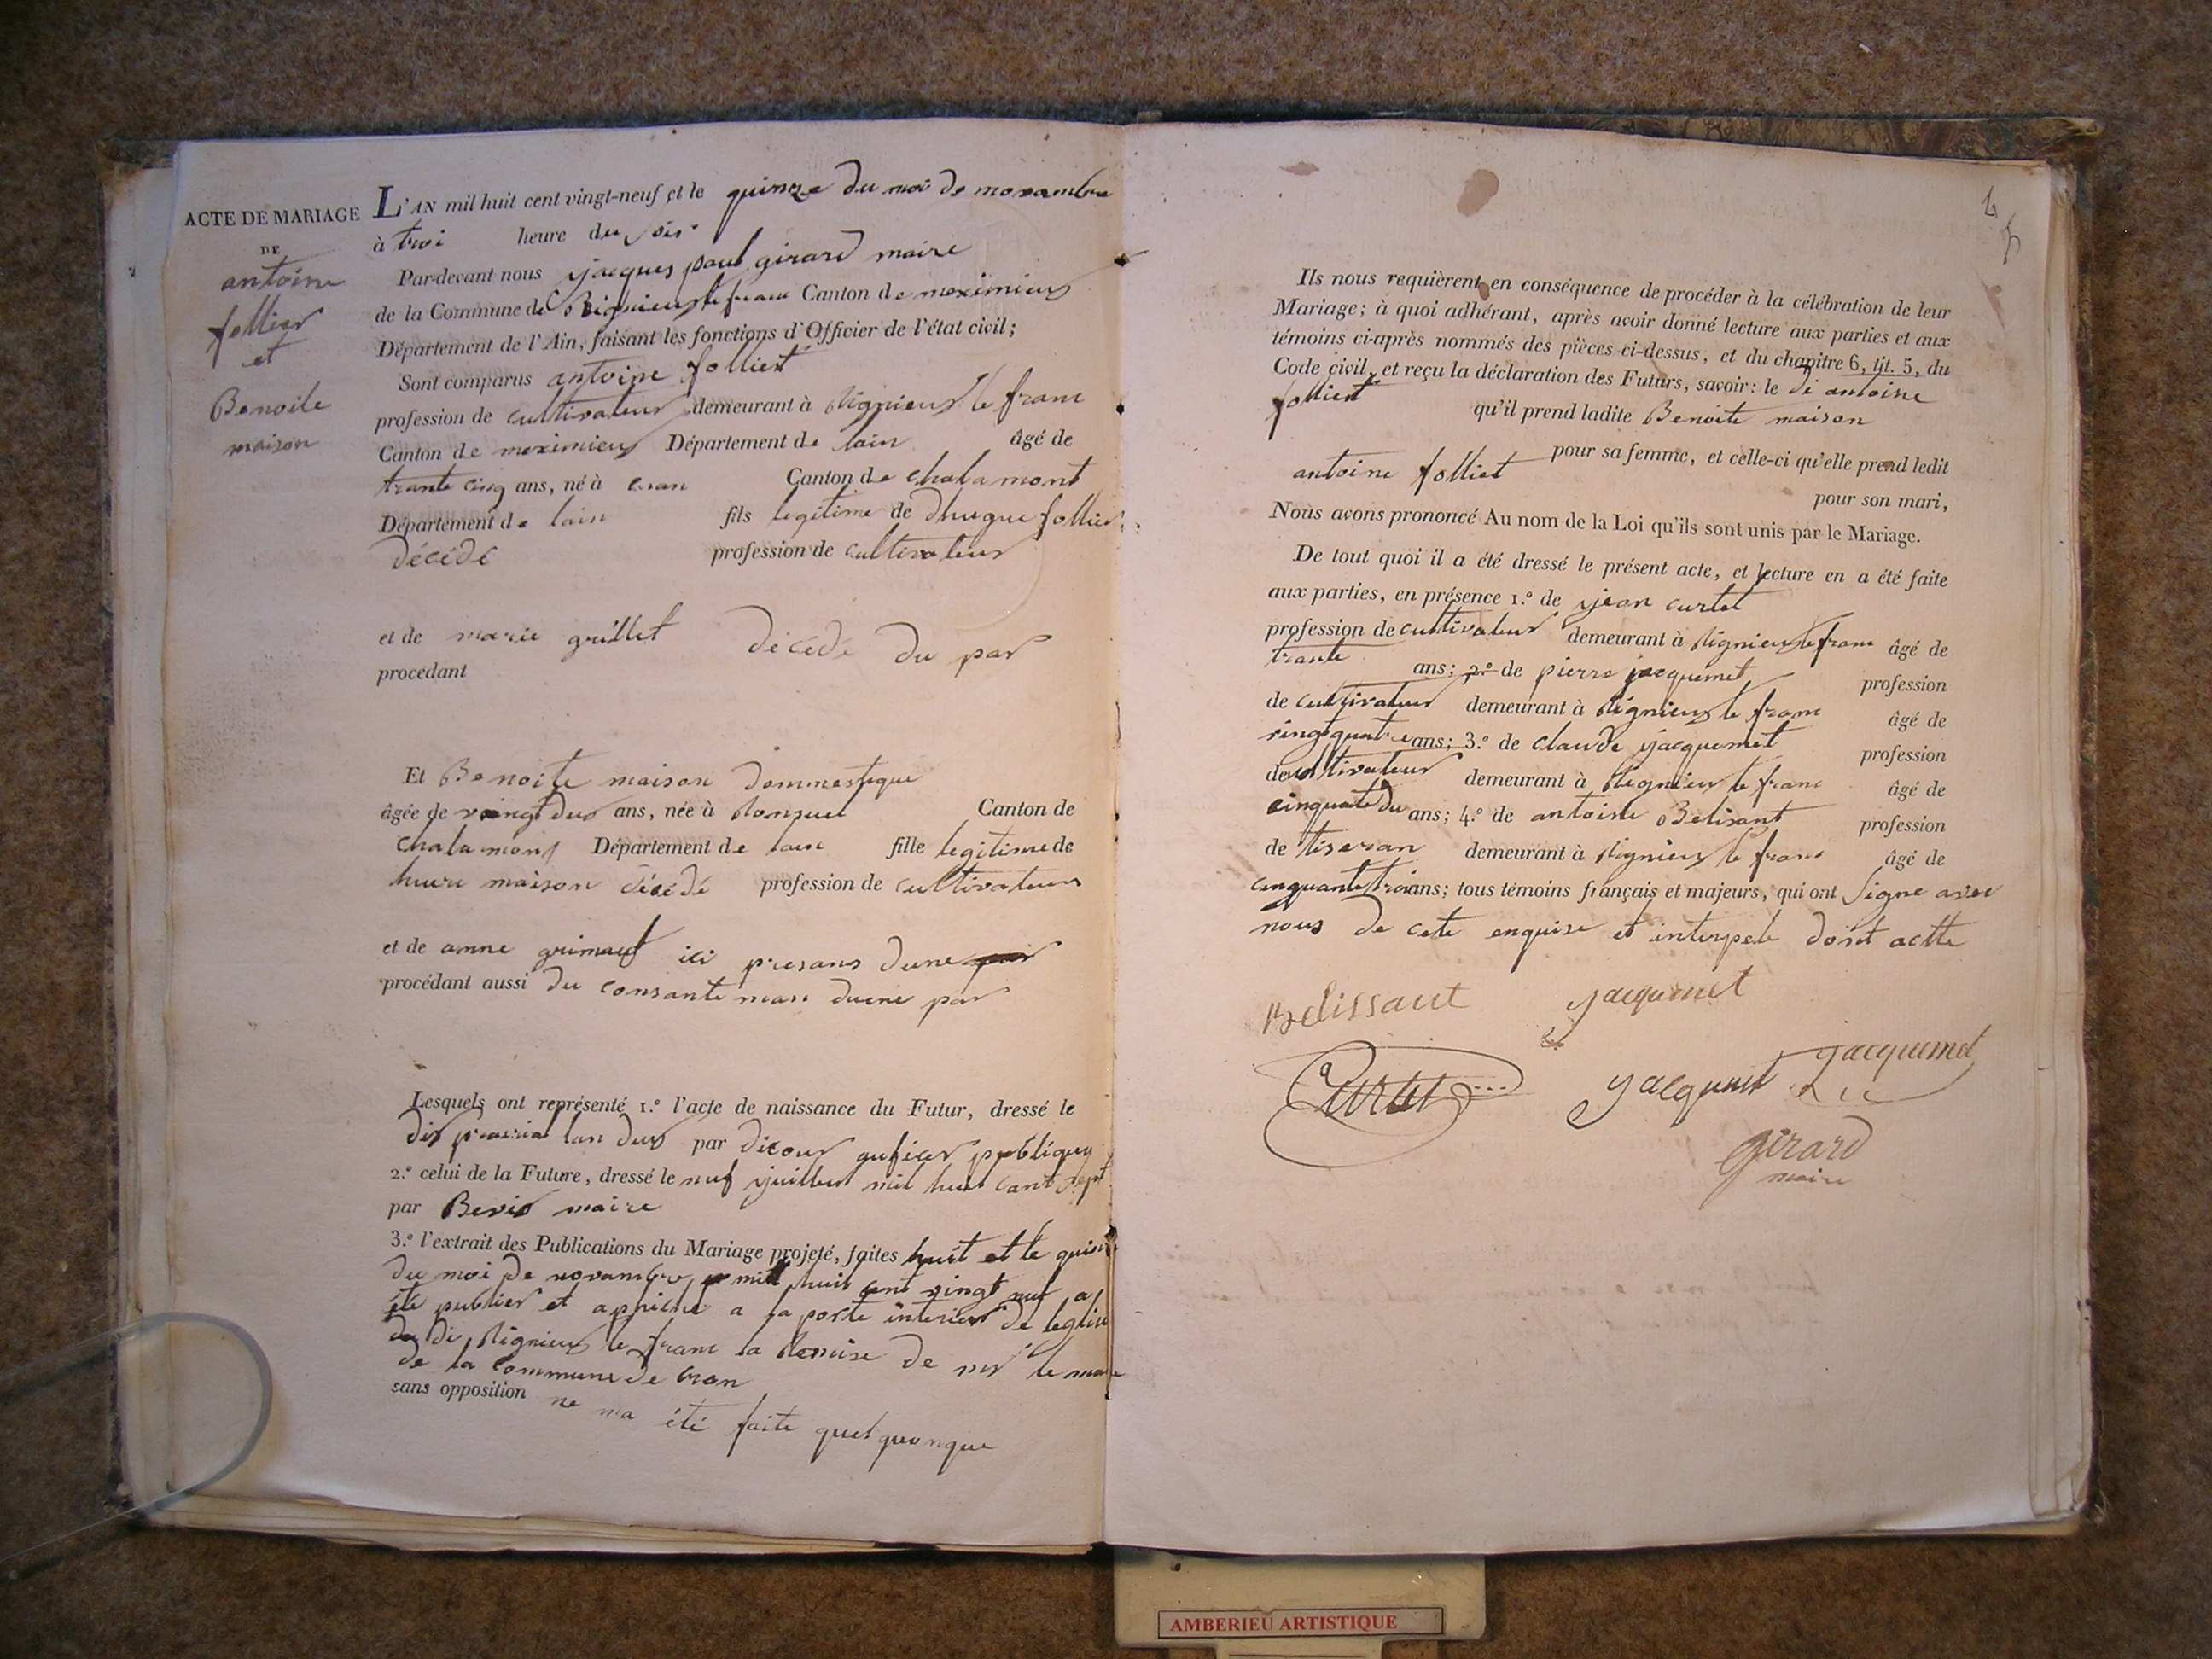 ACTE DE MARIAGE
DE
antoine
follier
et
Benoite
maison
L'AN mil huit cent vingt-neuf et le quinze du moi de novambre
à troi heure du soir
Par-devant nous jacques paul girard maire
de la Commune de Rignieux le franc Canton de meximieux
Département de l'Ain, faisant les fonctions d'Officier de l'état civil;
Sont comparus antoine folliet
profession de cultivateur demeurant à Rignieux le franc
Canton de meximieux Département de lain âgé de
trante cinq ans, né à cran Canton de chalamont
Département de lain fils legitime de follier
décédé profession de cultivateur
et de marie grillet décédé du par
procédant
Et Benoite maison dommestique
âgée de vingt dus ans, née à Canton de
chalamont Département de lain fille legitime de
maison décédé profession de cultivateur
et de anne ici presans dune
procédant aussi du consante man dune par
Lesquels ont représenté 1.º l'acte de naissance du Futur, dressé le
dix prairial lan dus par
2.º celui de la Future, dressé le nuf juillet mil huit cant sept
par maire
3.º l'extrait des Publications du Mariage projeté, faites huit et le
du moi de novambre mil huit cent vingt nuf a
été publier et a la porte interieur de leglise
du di Rignieux le franc la Remise de mr le maire
de la commune de cran
sans opposition ne ma été faite quelquonque
Ils nous requièrent en conséquence de procéder à la célébration de leur
Mariage; à quoi adhérant, après avoir donné lecture aux parties et aux
témoins ci-après nommés des pièces ci-dessus, et du chapitre 6, tit. 5, du
Code civil, et reçu la déclaration des Futurs, savoir: le di antoine
folliet qu'il prend ladite Benoite maison
pour sa femme, et celle-ci qu'elle prend ledit
antoine folliet pour son mari,
Nous avons prononcé Au nom de la Loi qu'ils sont unis par le Mariage.
De tout quoi il a été dressé le présent acte, et lecture en a été faite
aux parties, en présence 1.º de jean curtet
profession de cultivateur demeurant à Rignieux le franc âgé de
trante ans; 2.º de pierre jacquemet profession
de cultivateur demeurant à Rignieux le franc âgé de
vingt quatre ans; 3.º de claude jacquemet profession
de cultivateur demeurant à Rignieux le franc âgé de
cinquante du ans; 4.º de antoine Belisant profession
de tiseran demeurant à Rignieux le franc âgé de
cinquante troi ans; tous témoins français et majeurs, qui ont signe avec
nous de cete enquise et interpele dont actte
Belissant jacquemet
Curtet jacquemet jacquemet
girard
maire
AMBERIEU ARTISTIQUE